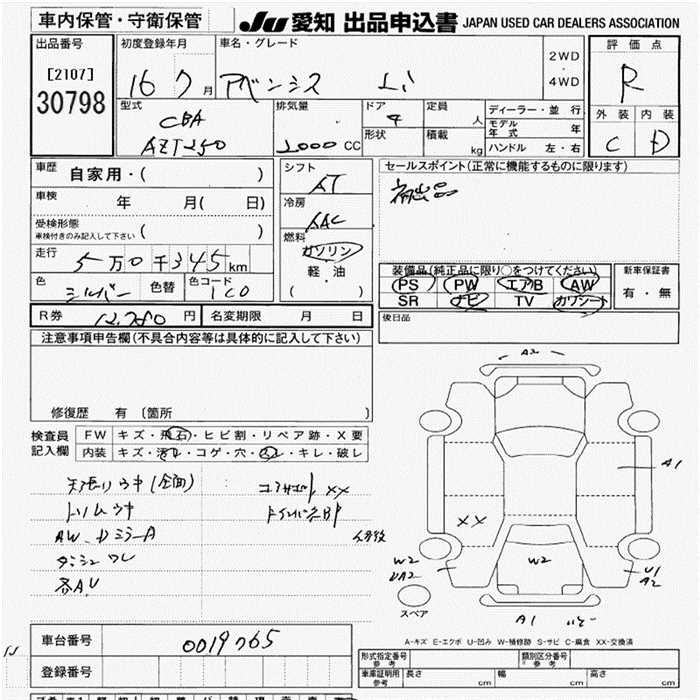 車内保管・守衛保管
JU 愛知 出品申込書 JAPAN USED CAR DEALERS ASSOCIATION
出品番号
[2107]
30798
初度登録年月
16 7 月
車名・グレード
アベンシス Li
2WD
・
4WD
評価点
R
外装 内装
C D
型式
CBA
AZT250
排気量
2000 CC
ドア
4
形状
定員
人
積載
kg
ディーラー・並行
モデル年式 年
ハンドル 左・右
車歴
自家用・( )
車検
年 月( 日)
受検形態
車検付きのみ記入して下さい ( )
走行
5万0千345km
色
シルバー
色替
色コード
1C0
シフト
AT
冷房
AAC
燃料
ガソリン
軽油
( )
セールスポイント(正常に機能するものに限ります)
初出品
装備品(純正品に限り○をつけてください)
PS PW エアB AW
SR ナビ TV カワシート
新車保証書
有・無
後日品
R券 12,780 円
名変期限 月 日
注意事項申告欄(不具合内容等は具体的に記入して下さい)
修復歴 有 〔箇所 〕
検査員
記入欄
FW キズ・飛石・ヒビ割・リペア跡・X要
内装 キズ・汚れ・コゲ・穴・スレ・キレ・破レ
天張りウキ(全面)
トリムウキ
AW、DミラーA
ダッシュワレ
各A,U
コアサポート XX
A2
A1
XX
W2
W2
UA2
U1
A2
A1
スペア
A-キズ E-エクボ U-凹み W-補修跡 S-サビ C-腐食 XX-交換済
車台番号
0019765
登録番号
形式指定番号
参考
類別区分番号
参考
車庫証明用
参考
長さ cm
幅 cm
高さ cm